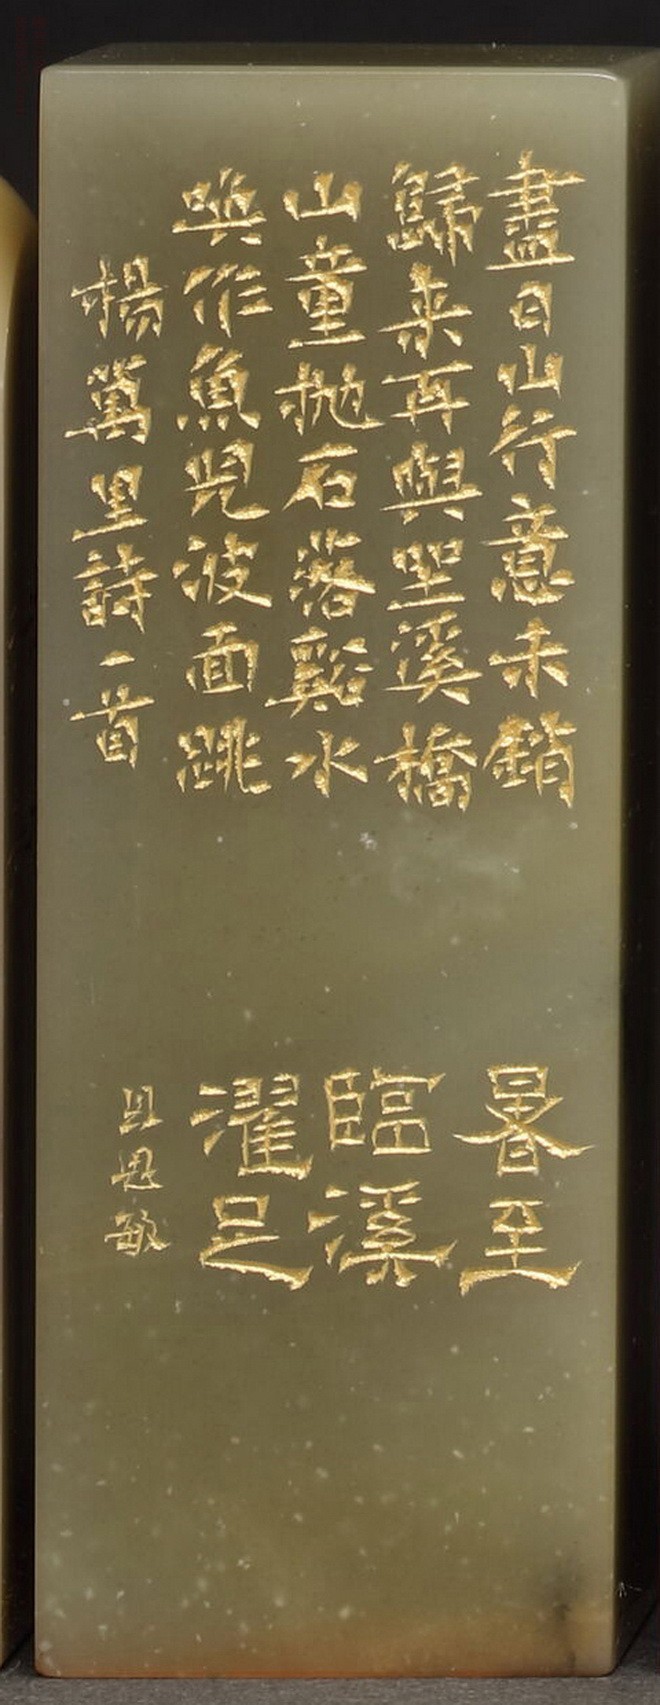 盡日山行意未銷
歸来再與溪橋
山童抛石落谿水
喚作魚兒波面跳
楊萬里詩一首
暑至
臨溪
濯足